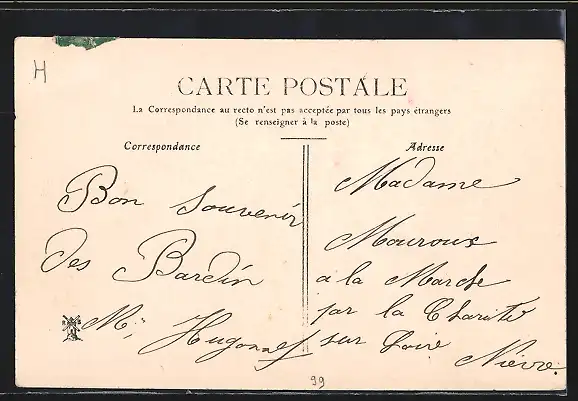 H
CARTE POSTALE
La Correspondance au recto n'est pas acceptée par tous les pays étrangers
(Se renseigner à la poste)
Correspondance
Bon Souvenir
des Bardin
M
Adresse
Madame
Mouroux
a la Marche
par la Charité
sur Loire
Nièvre.
99